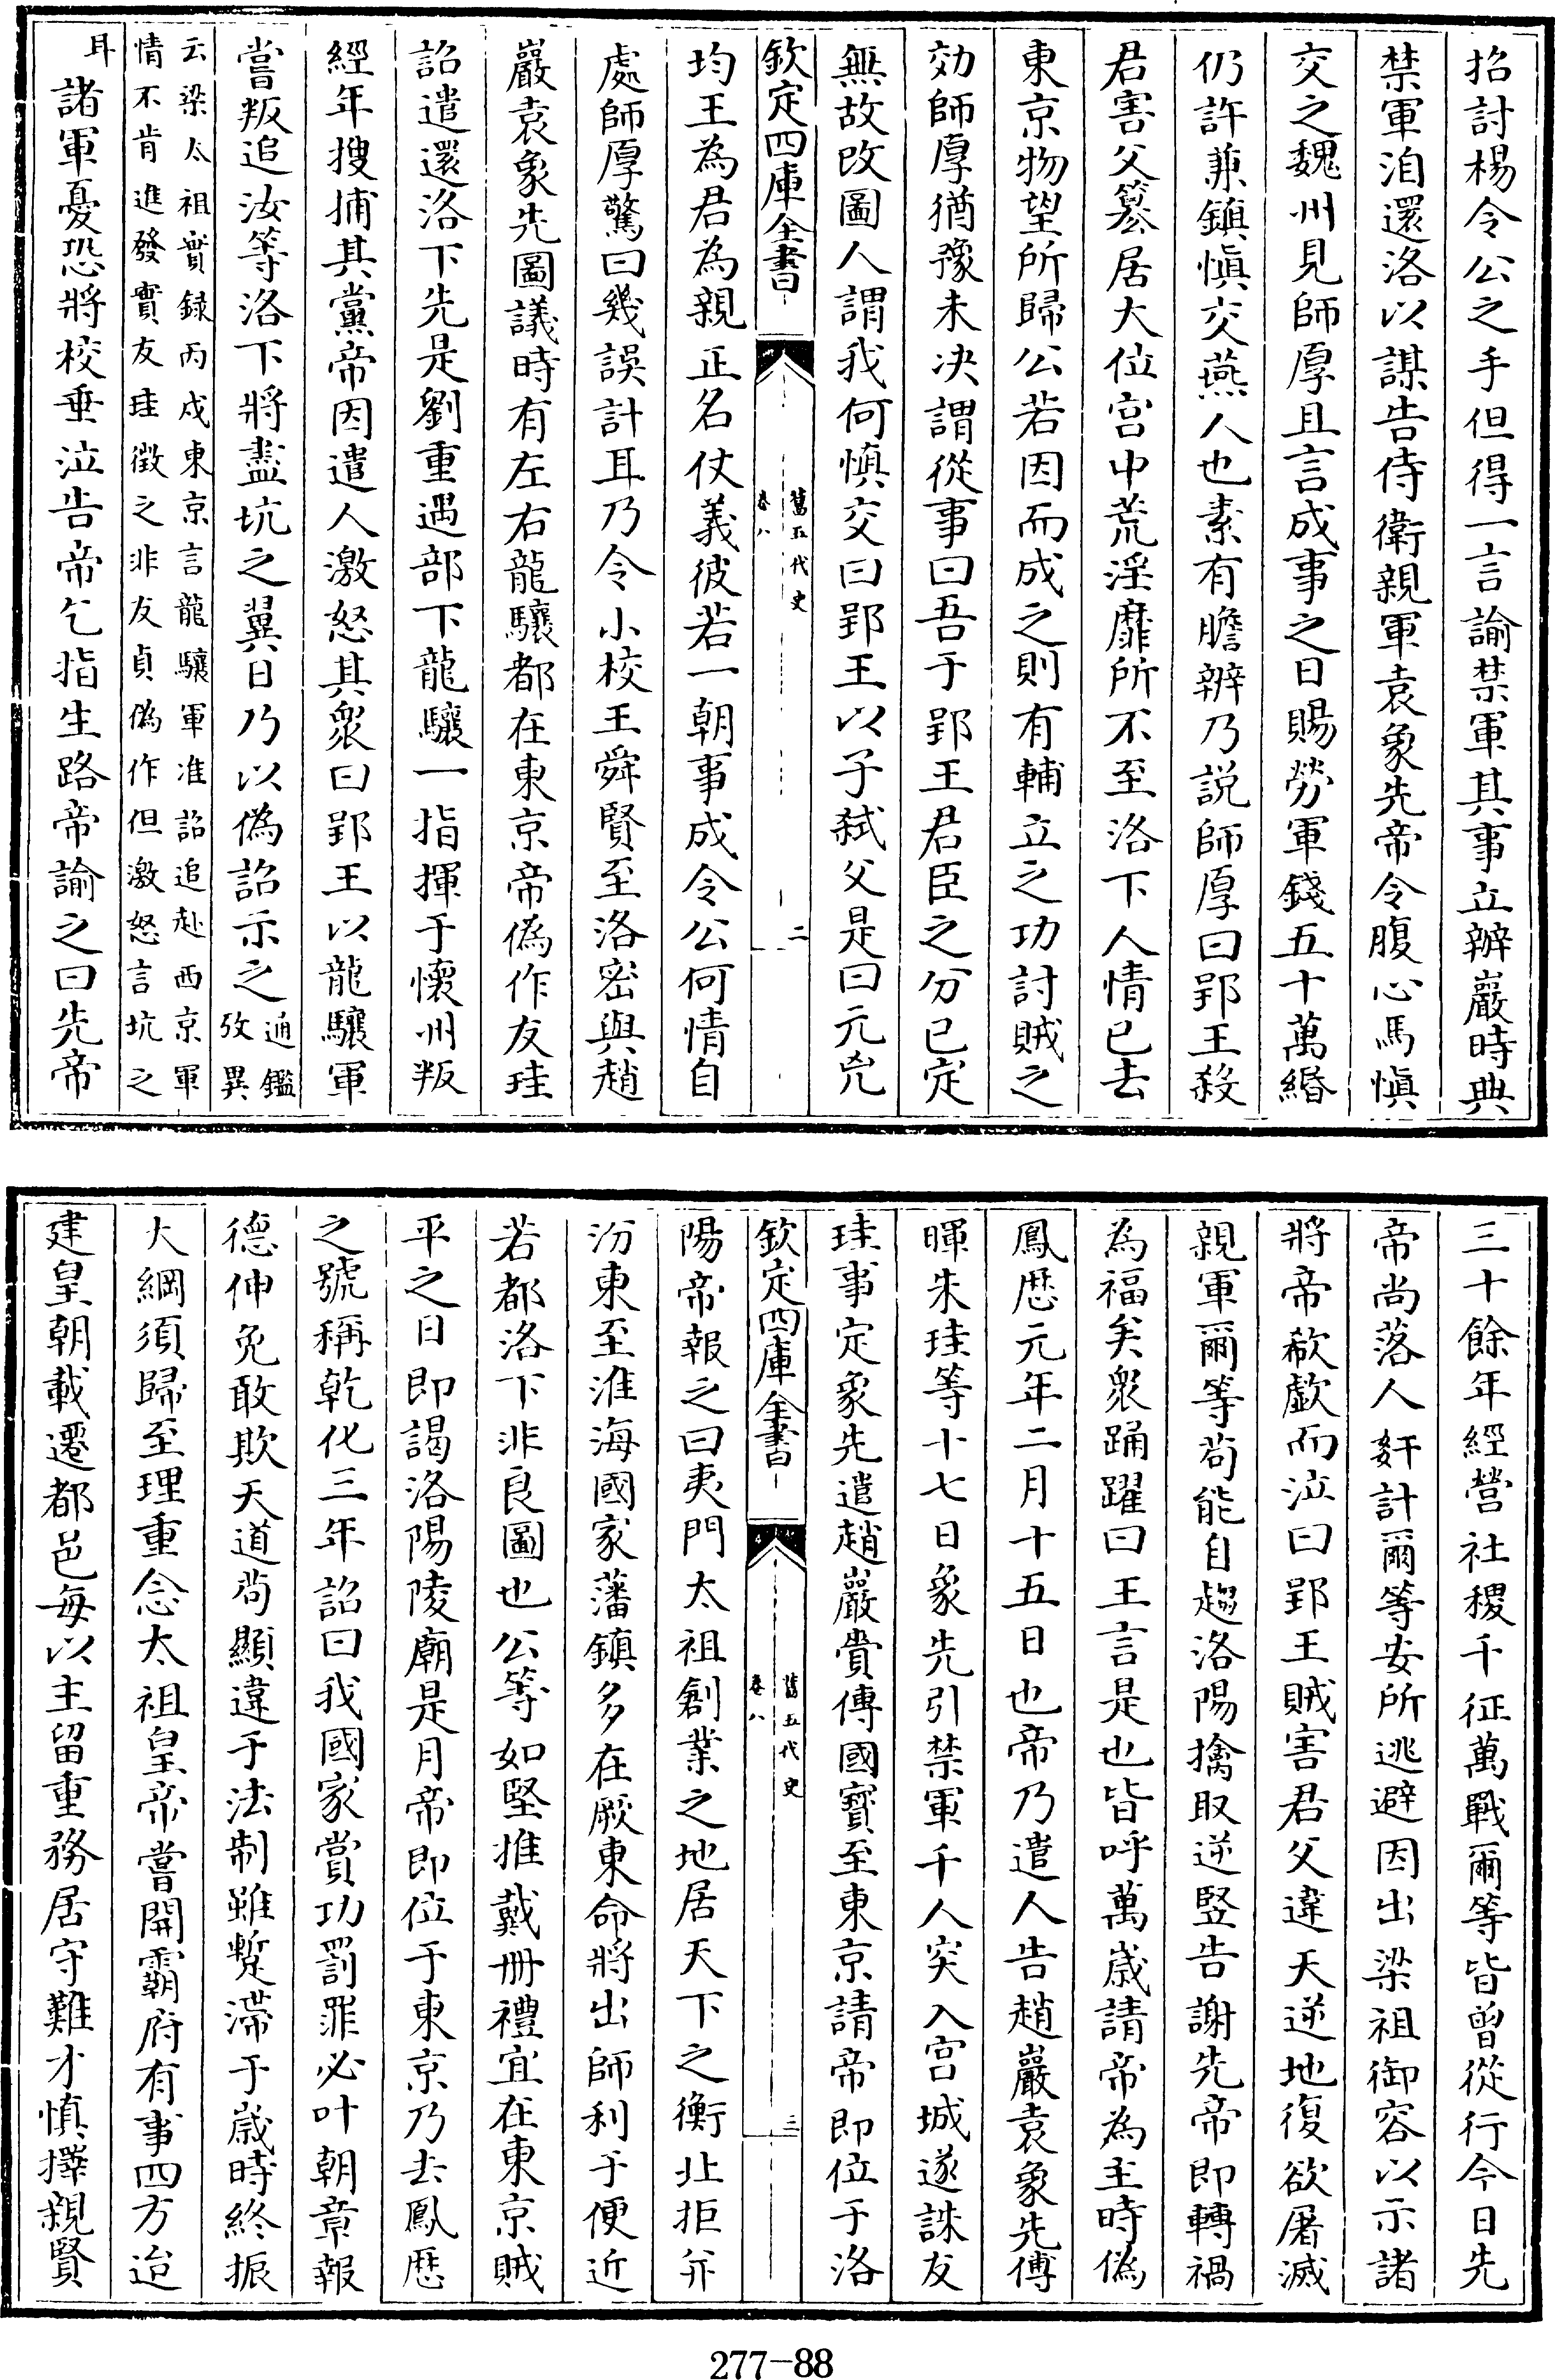 招討楊令公之手但得一言諭禁軍其事立辦巖時典
禁軍洎還洛以謀告侍衛親軍袁象先帝令腹心馬慎
交之魏州見師厚且言成事之日賜勞軍錢五十萬緡
仍許兼鎮慎交燕人也素有膽辨乃説師厚曰郢王殺
君害父簒居大位宫中荒淫靡所不至洛下人情已去
東京物望所歸公若因而成之則有輔立之功討賊之
効師厚猶豫未决謂從事曰吾于郢王君臣之分已定
無故改圖人謂我何慎交曰郢王以子弑父是曰元兇
欽定四庫全書
舊五代史
卷八
二
均王為君為親正名仗義彼若一朝事成令公何情自
處師厚驚曰幾誤計耳乃令小校王舜賢至洛密與趙
巖袁象先圖議時有左右龍驤都在東京帝偽作友珪
詔遣還洛下先是劉重遇部下龍驤一指揮于懷州叛
經年搜捕其黨帝因遣人激怒其衆曰郢王以龍驤軍
嘗叛追汝等洛下將盡坑之翼日乃以偽詔示之通鑑
攷異
云梁太祖實録丙戌東京言龍驤軍准詔追赴西京軍
情不肯進發實友珪徵之非友貞偽作但激怒言坑之
耳諸軍憂恐將校垂泣告帝乞指生路帝諭之曰先帝
三十餘年經營社稷千征萬戰爾等皆曾從行今日先
帝尚落人奸計爾等安所逃避因出梁祖御容以示諸
將帝欷歔而泣曰郢王賊害君父違天逆地復欲屠滅
親軍爾等茍能自趨洛陽擒取逆竪告謝先帝即轉禍
為福矣衆踊躍曰王言是也皆呼萬嵗請帝為主時偽
鳳厯元年二月十五日也帝乃遣人告趙巖袁象先傅
暉朱珪等十七日象先引禁軍千人突入宫城遂誅友
珪事定象先遣趙巖賫傳國寶至東京請帝即位于洛
欽定四庫全書
舊五代史
卷八
三
陽帝報之曰夷門太祖創業之地居天下之衝北拒并
汾東至淮海國家藩鎮多在厥東命將出師利于便近
若都洛下非良圖也公等如堅推戴冊禮宜在東京賊
平之日即謁洛陽陵廟是月帝即位于東京乃去鳳厯
之號稱乾化三年詔曰我國家賞功罰罪必叶朝章報
德伸免敢欺天道茍顯違于法制雖蹔滯于嵗時終振
大綱須歸至理重念太祖皇帝嘗開霸府有事四方迨
建皇朝載遷都邑每以主留重務居守難才慎擇親賢
277-88